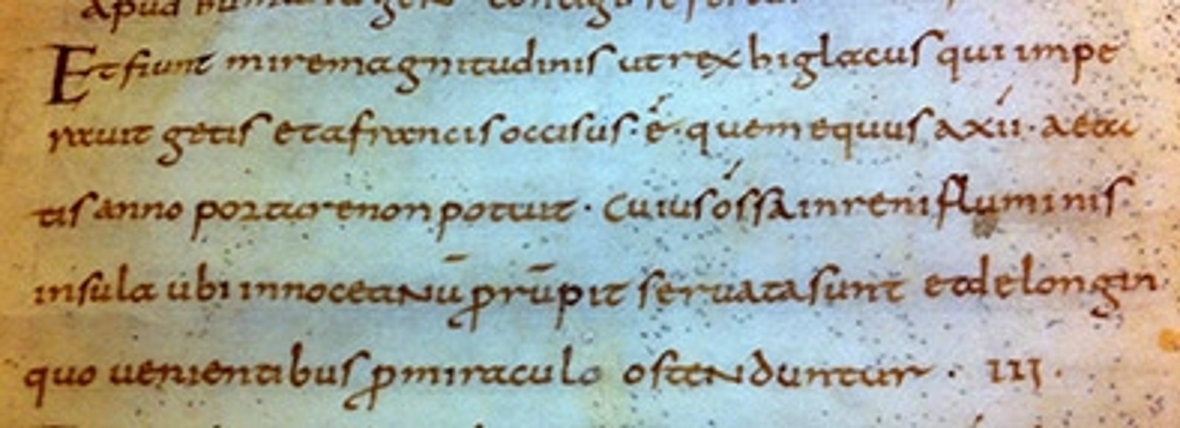 Et fiunt mire magnitudinis ut rex higlacus qui impe
rauit getis et a francis occisus · é · quem equus a xíí · aeta
tis anno portare non potuit · Cuius óssa in reni fluminis
insula ubi in oceanū prūpit seruata sunt et de longin
quo uenientibus ꝑ miraculo ostenduntur · III ·